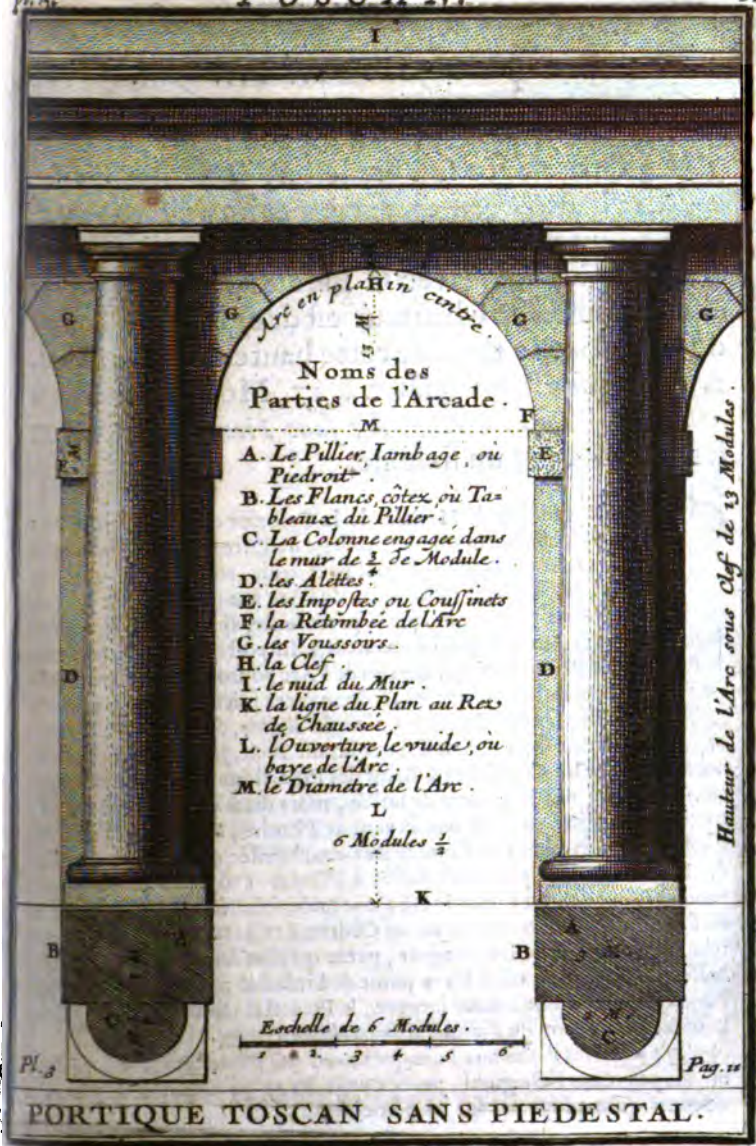 I
Arc en plain cintre.
H
13 M.
G
G
G
G
Noms des
Parties de l'Arcade.
M
F
E
A. Le Pillier, Iambage où
Piedroit.
B. Les Flancs, côtez, où Ta=
bleaux du Pillier.
C. La Colonne engageé dans
le mur de 3/4 de Module.
D. les Alettes.
E. les Impostes ou Coussinets
F. la Retombeé de l'Arc
G. les Voussoirs.
H. la Clef.
I. le nud du Mur.
K. la ligne du Plan au Rez
de Chausseé.
L. l'Ouverture, le vuide, où
baye de l'Arc.
M. le Diametre de l'Arc.
D
D
L
6 Modules 1/2
K
Hauteur de l'Arc sous Clef de 13 Modules.
B
A
B
A
3 M.
2 M.
C
C
Eschelle de 6 Modules.
1 2 3 4 5 6
Pl. 3
Pag. 11
PORTIQUE TOSCAN SANS PIEDESTAL.